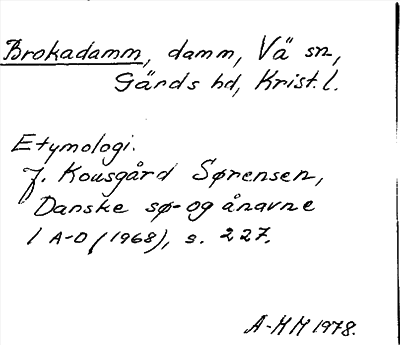 Brokadamm, damm, Vä sn,
Gärds hd, Krist. l.
Etymologi.
J. Kousgård Sørensen,
Danske sø- og ånavne
1 A-D (1968), s. 227.
A-MM 1978.